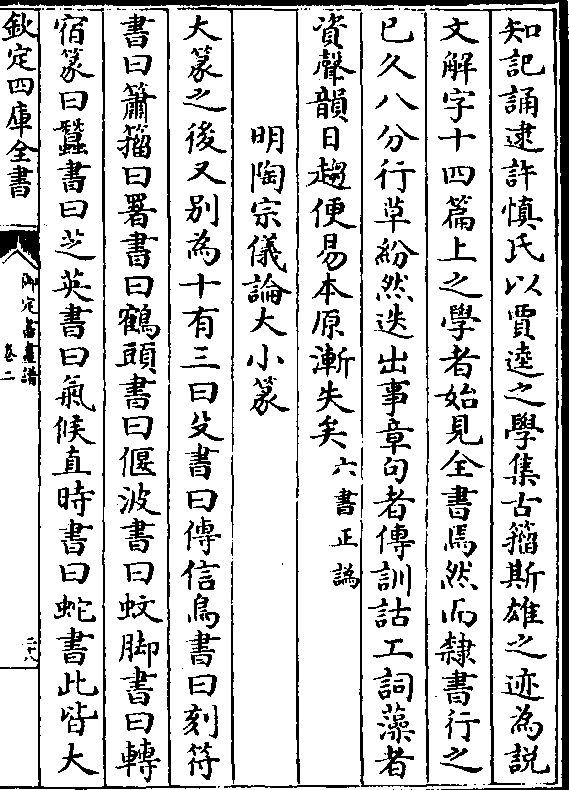 知記誦逮許慎氏以賈逵之學集古籀斯雄之迹為説
文解字十四篇上之學者始見全書焉然而隸書行之
已久八分行草紛然迭出事章句者傳訓詁工詞藻者
資聲韻日趨便易本原漸失矣六書正譌
明陶宗儀論大小篆
大篆之後又别為十有三曰殳書曰傳信鳥書曰刻符
書曰簫籀曰署書曰鶴頭書曰偃波書曰蚊脚書曰轉
宿篆曰蠶書曰芝英書曰氣候直時書曰蛇書此皆大
欽定四庫全書
御定書畫譜
卷二
二十八